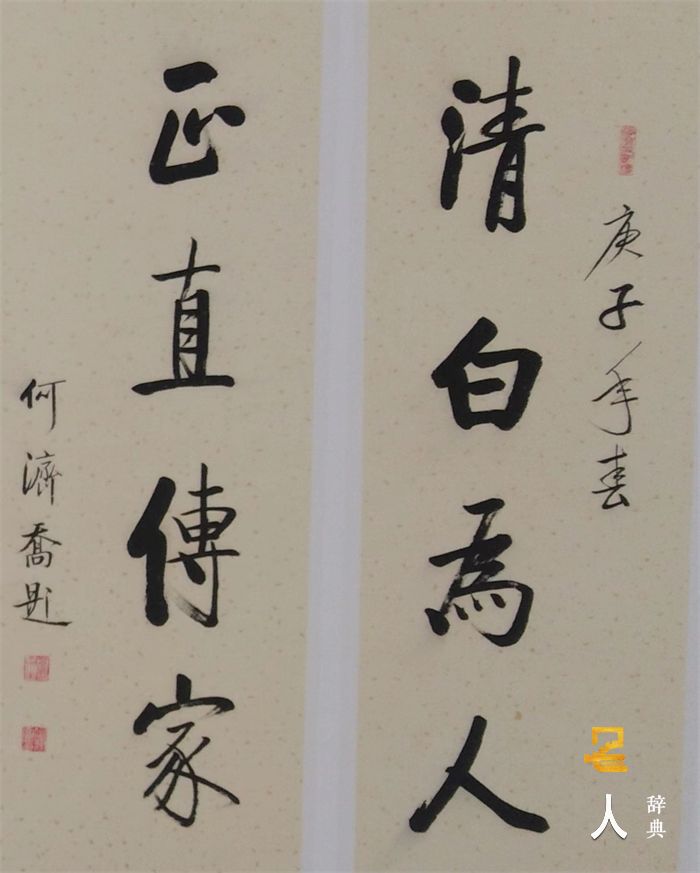 庚子年春
清白為人
正直傳家
何濟喬題
名人
辞典